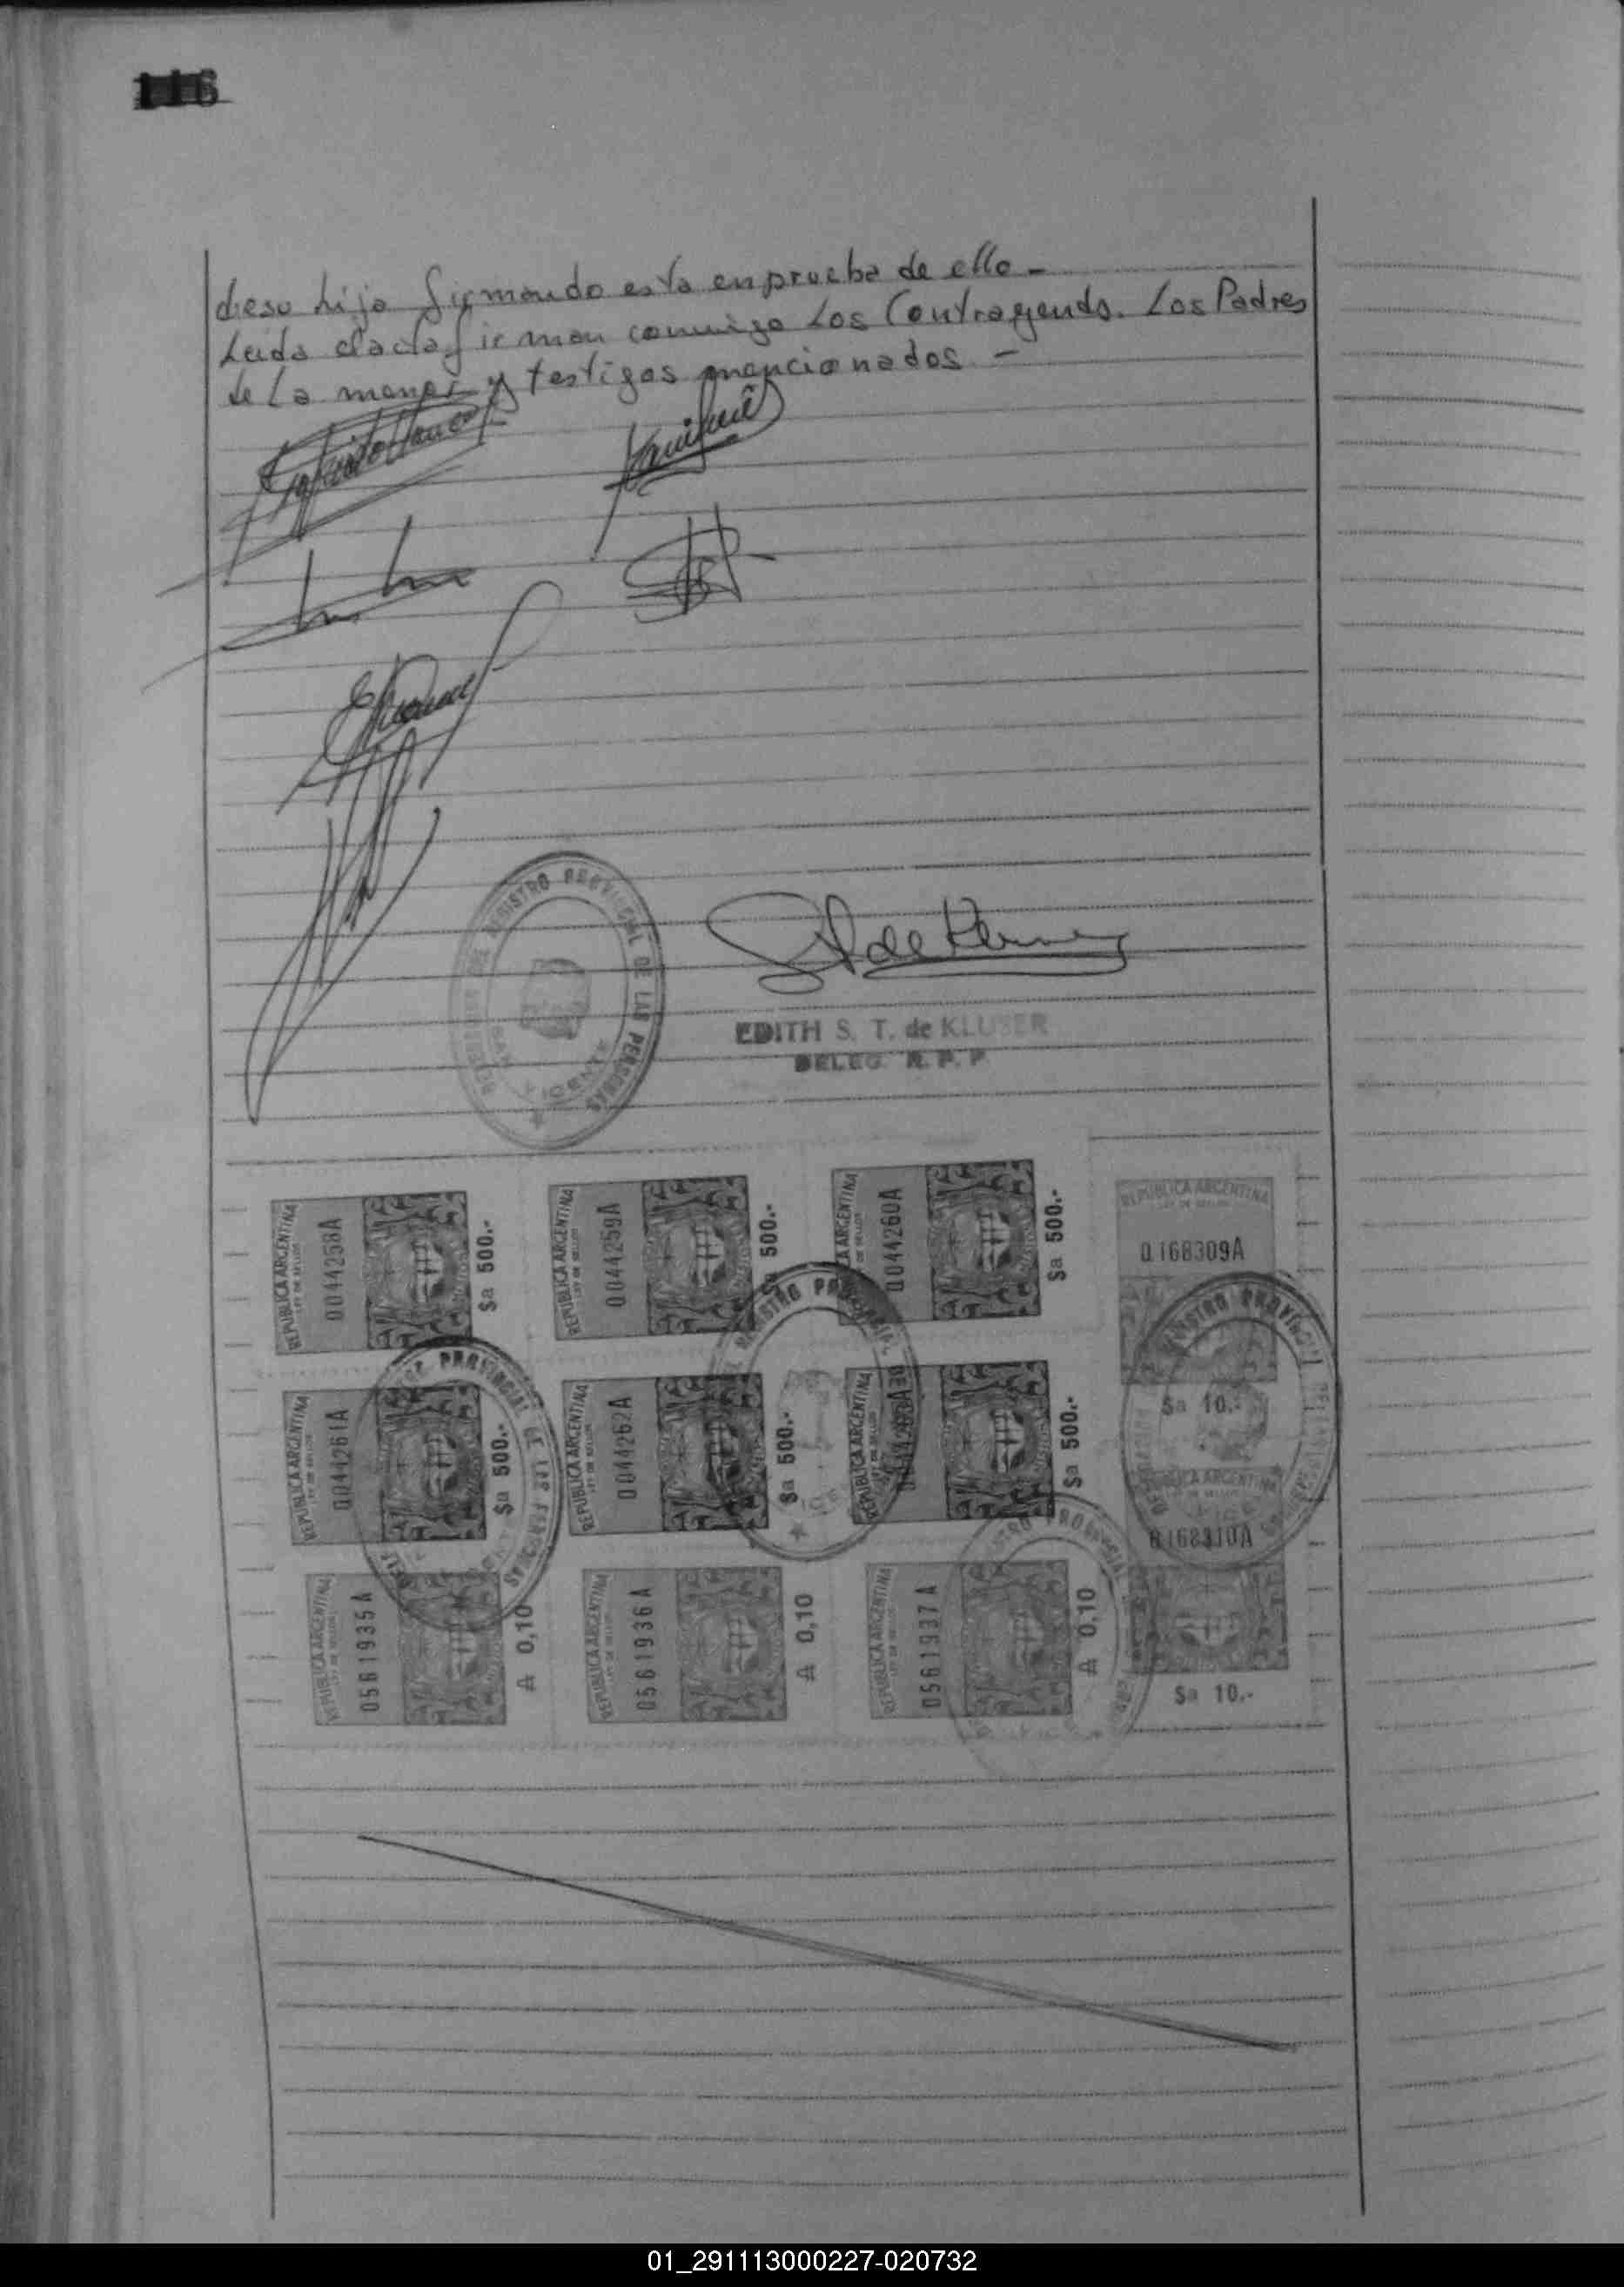 116
deso hija firmando esta en prueba de ello -
Leida el acta firman conmigo Los Contrayentes. Los Padres
de La menor y testigos mencionados. -
REGISTRO PROVINCIAL DE LAS PERSONAS
SAN VICENTE
EDITH S. T. de KLUSER
DELEG. R. P. P.
REPUBLICA ARGENTINA
LEY DE SELLOS
0044258A
$a 500.-
REPUBLICA ARGENTINA
LEY DE SELLOS
0044259A
$a 500.-
REPUBLICA ARGENTINA
LEY DE SELLOS
0044260A
$a 500.-
REPUBLICA ARGENTINA
LEY DE SELLOS
0168309A
$a 10.-
REPUBLICA ARGENTINA
LEY DE SELLOS
0044261A
$a 500.-
REPUBLICA ARGENTINA
LEY DE SELLOS
0044262A
$a 500.-
REPUBLICA ARGENTINA
LEY DE SELLOS
0044263A
$a 500.-
REPUBLICA ARGENTINA
0168310A
$a 10.-
REPUBLICA ARGENTINA
LEY DE SELLOS
0561935A
₳ 0,10
REPUBLICA ARGENTINA
LEY DE SELLOS
0561936A
₳ 0,10
REPUBLICA ARGENTINA
LEY DE SELLOS
0561937A
₳ 0,10
REGISTRO PROVINCIAL DE LAS PERSONAS
01_291113000227-020732